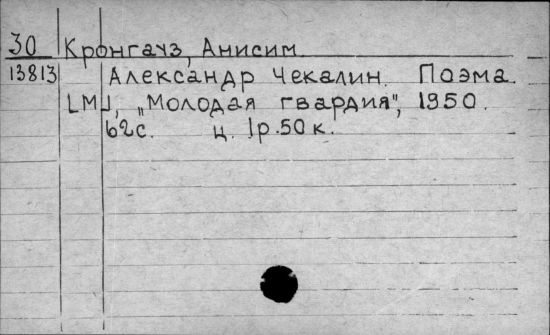 30 Кронгауз, Анисим
13813 Александр Чекалин. Поэма.
[М], „Молодая гвардия", 1950.
62с. ц. 1р.50к.